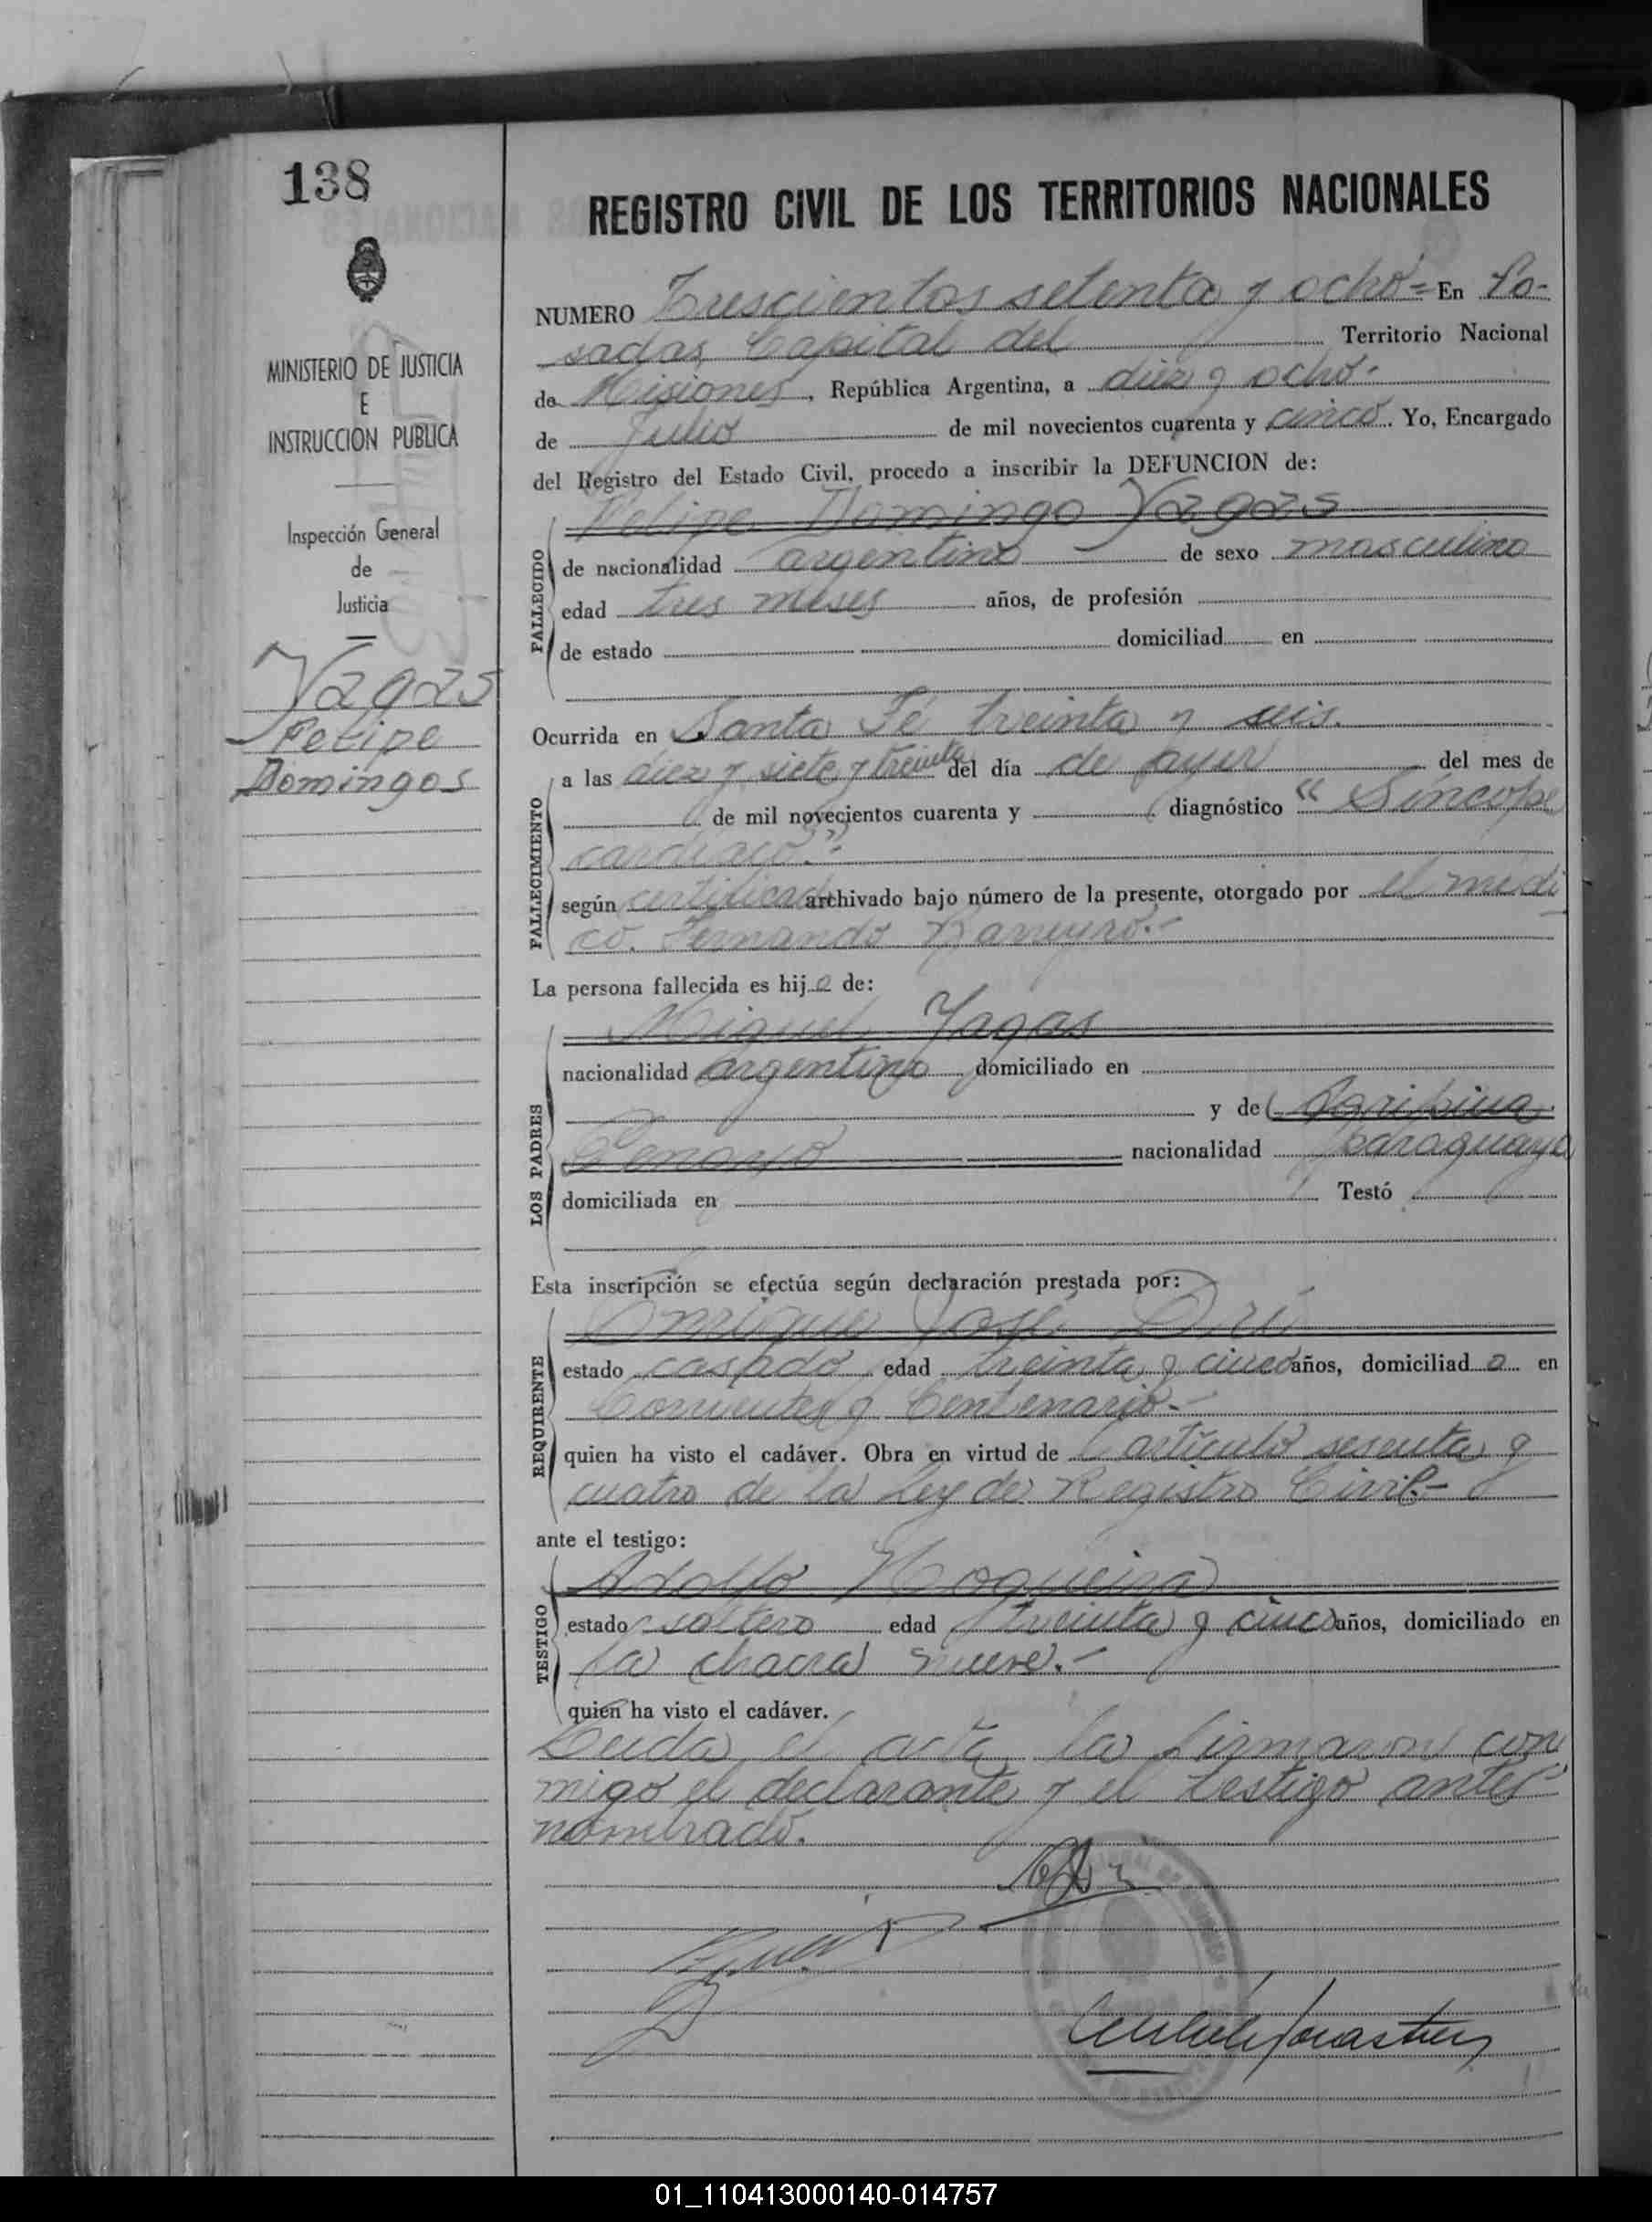 138
MINISTERIO DE JUSTICIA
E
INSTRUCCION PUBLICA
Inspección General
de
Justicia
Yagas
Felipe
Domingos
REGISTRO CIVIL DE LOS TERRITORIOS NACIONALES
NUMERO Trescientos setenta y ocho = En Po-
sadas, Capital del Territorio Nacional
de Misiones, República Argentina, a diez y ocho.
de Julio de mil novecientos cuarenta y cinco. Yo, Encargado
del Registro del Estado Civil, procedo a inscribir la DEFUNCION de:
Felipe Domingo Yagas
FALLECIDO
de nacionalidad argentino de sexo masculino
edad tres meses años, de profesión
de estado domiciliad en
Ocurrida en Santa Fé treinta y seis.
FALLECIMIENTO
a las diez y siete y treinta del día de ayer del mes de
de mil novecientos cuarenta y diagnóstico "Síncope
cardiaco".
según certificado archivado bajo número de la presente, otorgado por el médi
co. Fernando Barreyro.-
La persona fallecida es hijo de:
LOS PADRES
Miguel Yagas
nacionalidad argentino domiciliado en
y de Agripina
nacionalidad paraguaya
domiciliada en Testó
Esta inscripción se efectúa según declaración prestada por:
REQUIRENTE
Enrique José
estado casado edad treinta y cinco años, domiciliado en
Corrientes y Centenario.-
quien ha visto el cadáver. Obra en virtud de artículo sesenta y
cuatro de la Ley de Registro Civil.-
ante el testigo:
TESTIGO
Adolfo Nogueira
estado soltero edad treinta y cinco años, domiciliado en
la chacra nueve.-
quien ha visto el cadáver.
Leida el acta la firmaron con
migo el declarante y el testigo ante
nombrado.
01_110413000140-014757